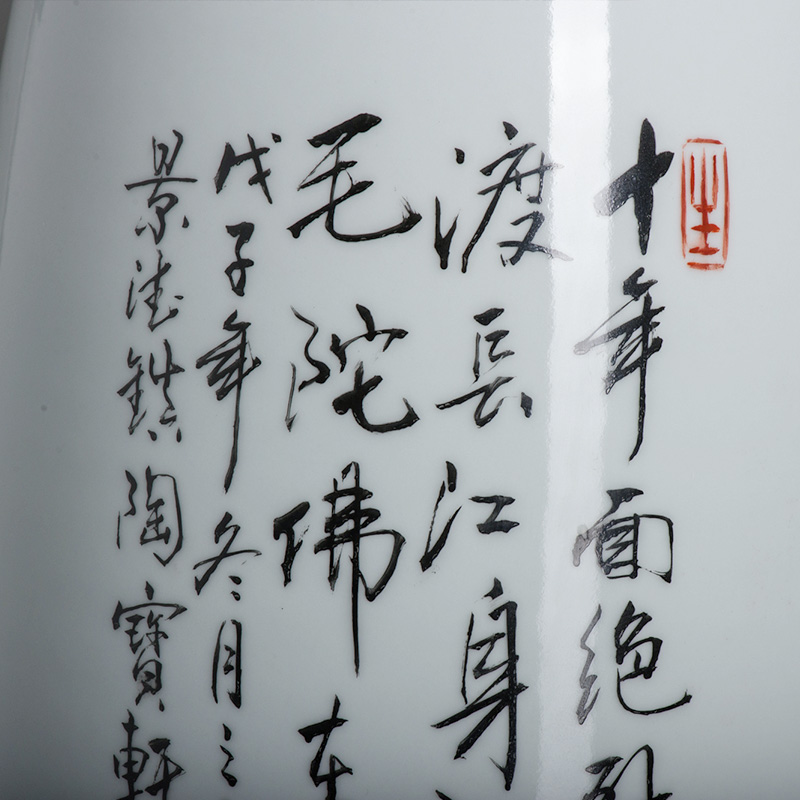 十年面絶
渡長江身
毛陀佛在
戊子年冬月
景德鎮陶寶軒